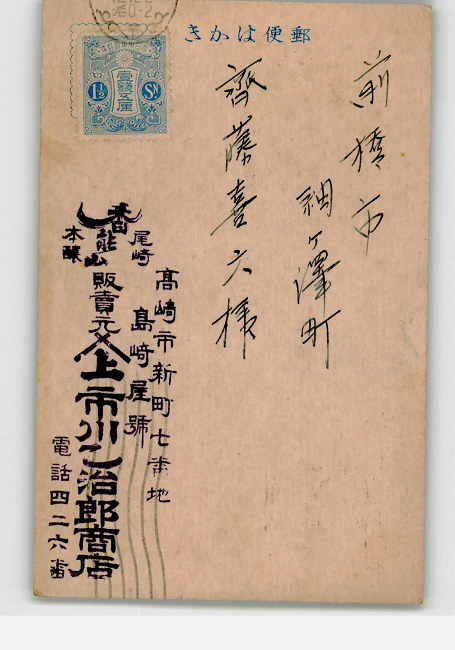 郵便はかき
前橋市
細ヶ澤町
齊藤喜六様
壹錢五厘
1½ Sn
高崎市新町七番地
島崎屋號
尾崎
本釀
販賣元
上市川乙治郎商店
電話四二六番